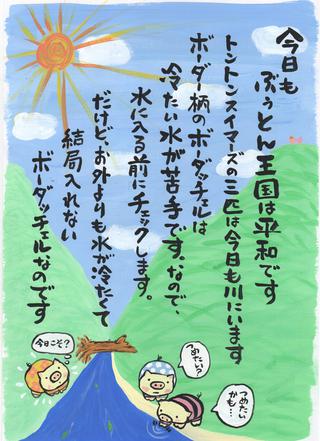 今日も
ぶぅとん王国は平和です
トントンスイマーズの三匹は今日も川にいます
ボーダー柄のボーダッチェルは
冷たい水が苦手です。なので、
水に入る前にチェックします。
だけど、お外よりも水が冷たくて
結局入れない
ボーダッチェルなのです
今日こそ?
つめたい?
つめたいかも…